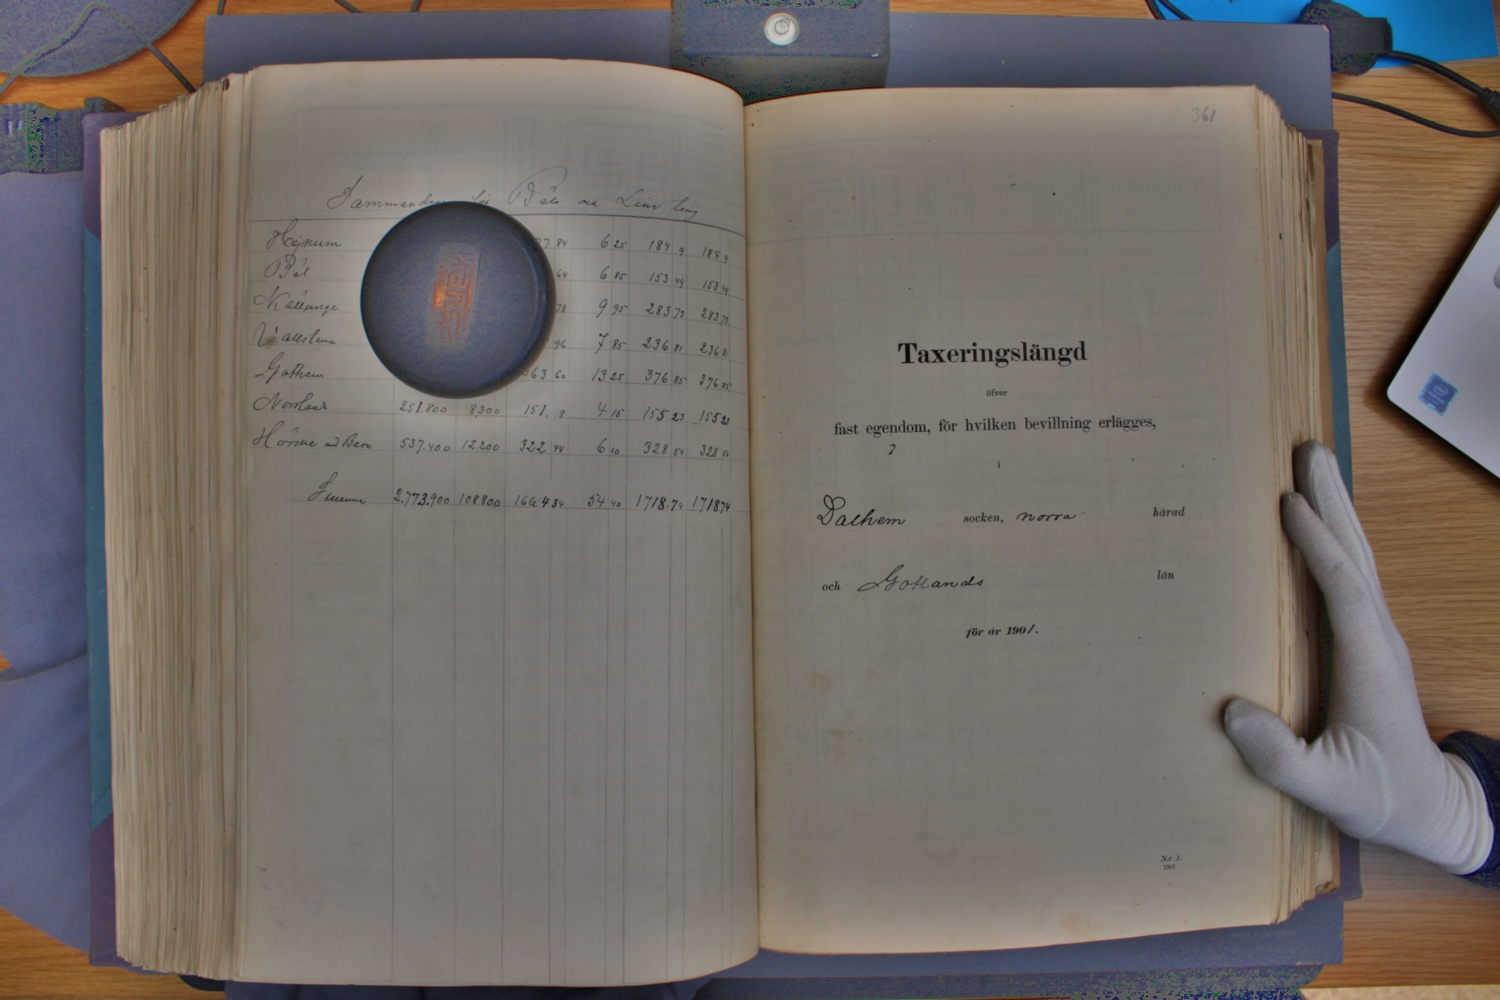 Bäls och ting
Hejnum 84 6 25 184 9 184 9
Bäl 64 6 85 153 49 153 49
Källunge 78 9 95 283 73 283 73
Vallstena 96 7 85 236 81 236 81
Gothem 63 60 13 25 376 85 376 85
Norrlanda 251.800 8,300 151. 8 4 15 155 23 155 23
Hörsne med Bara 537.400 12.200 322 44 6 10 328 54 328 54
Summa 2,773.900 108.800 1664 34 54 40 1718.74 1718 74
361
Taxeringslängd
öfver
fast egendom, för hvilken bevillning erlägges,
i
Dalhem socken, norra härad
och Gotlands län
för år 1901.
N:r 1.
1901